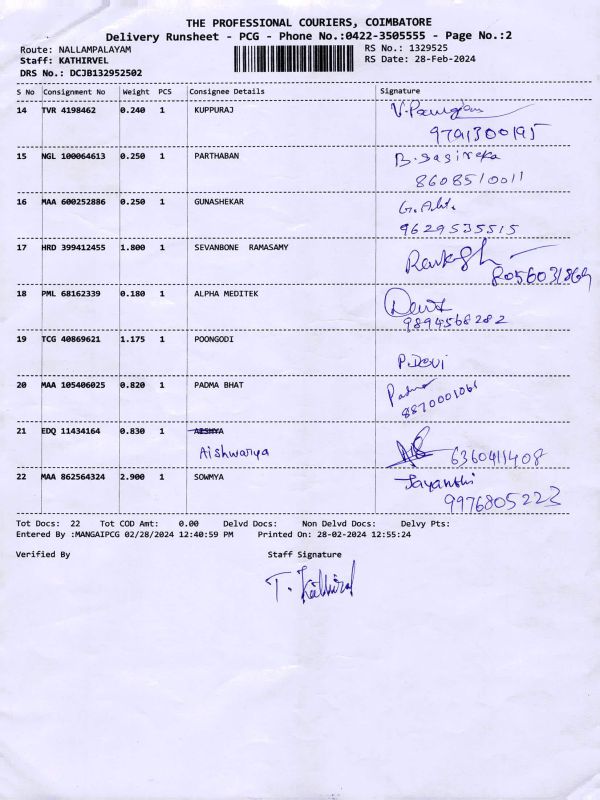 THE PROFESSIONAL COURIERS, COIMBATORE
Delivery Runsheet - PCG - Phone No.:0422-3505555 - Page No.:2
Route: NALLAMPALAYAM RS No.: 1329525
Staff: KATHIRVEL RS Date: 28-Feb-2024
DRS No.: DCJB132952502
S No Consignment No Weight PCS Consignee Details Signature
14 TVR 4198462 0.240 1 KUPPURAJ
9791300195
15 NGL 100064613 0.250 1 PARTHABAN B. Sasireka
8608510011
16 MAA 600252886 0.250 1 GUNASHEKAR
9629535515
17 HRD 399412455 1.800 1 SEVANBONE RAMASAMY
8056031869
18 PML 68162339 0.180 1 ALPHA MEDITEK
9894568282
19 TCG 40869621 1.175 1 POONGODI
P.Devi
20 MAA 105406025 0.820 1 PADMA BHAT Padma
8870001061
21 EDQ 11434164 0.830 1
Aishwarya 6360411408
22 MAA 862564324 2.900 1 SOWMYA Jayanthi
9976805223
Tot Docs: 22 Tot COD Amt: 0.00 Delvd Docs: Non Delvd Docs: Delvy Pts:
Entered By :MANGAIPCG 02/28/2024 12:40:59 PM Printed On: 28-02-2024 12:55:24
Verified By Staff Signature